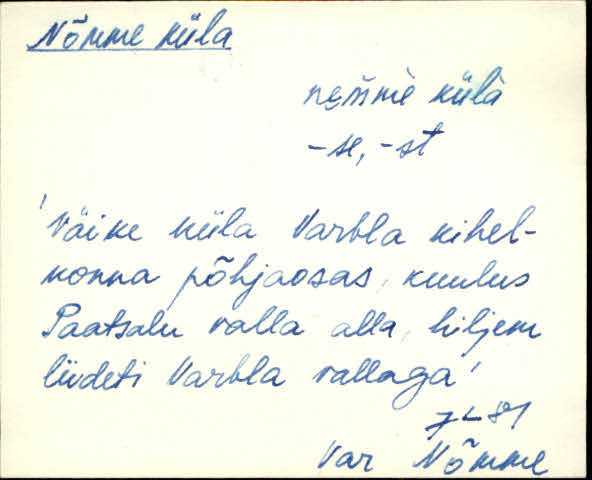 Nõmme küla
nem̆mè külà
-se, -st
'Väike küla Varbla kihel-
konna põhjaosas, kuulus
Paatsalu valla alla, hiljem
liideti Varbla vallaga'
Var Nõmme